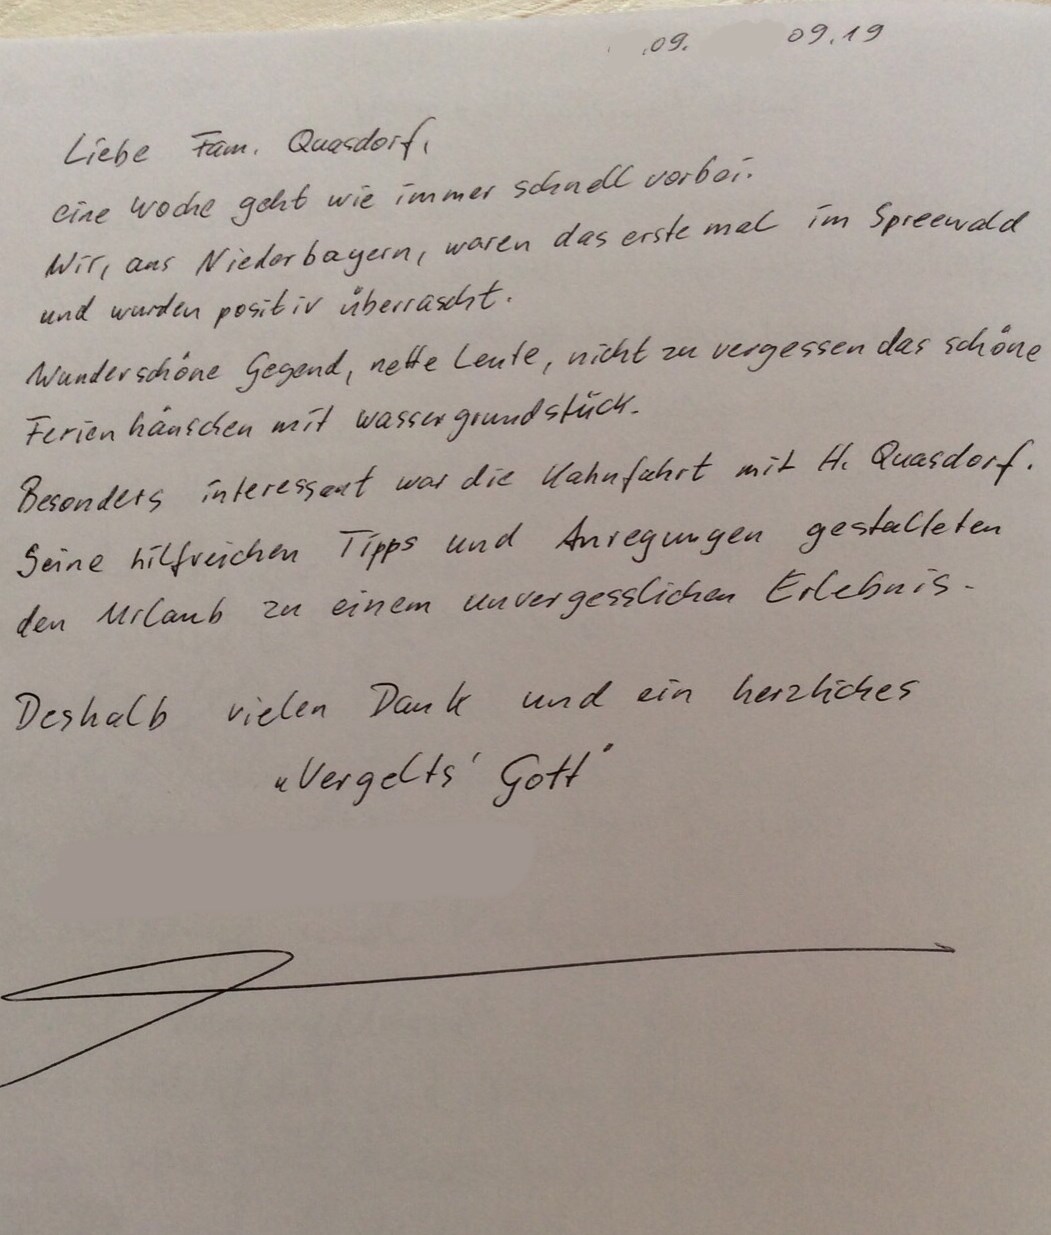 .09. 09.19
Liebe Fam. Quasdorf,
eine Woche geht wie immer schnell vorbei.
Wir, aus Niederbayern, waren das erste mal im Spreewald
und wurden positiv überrascht.
Wunderschöne Gegend, nette Leute, nicht zu vergessen das schöne
Ferienhäuschen mit Wassergrundstück.
Besonders interessant war die Kahnfahrt mit H. Quasdorf.
Seine hilfreichen Tipps und Anregungen gestalteten
den Urlaub zu einem unvergesslichen Erlebnis.
Deshalb vielen Dank und ein herzliches
„Vergelts' Gott"